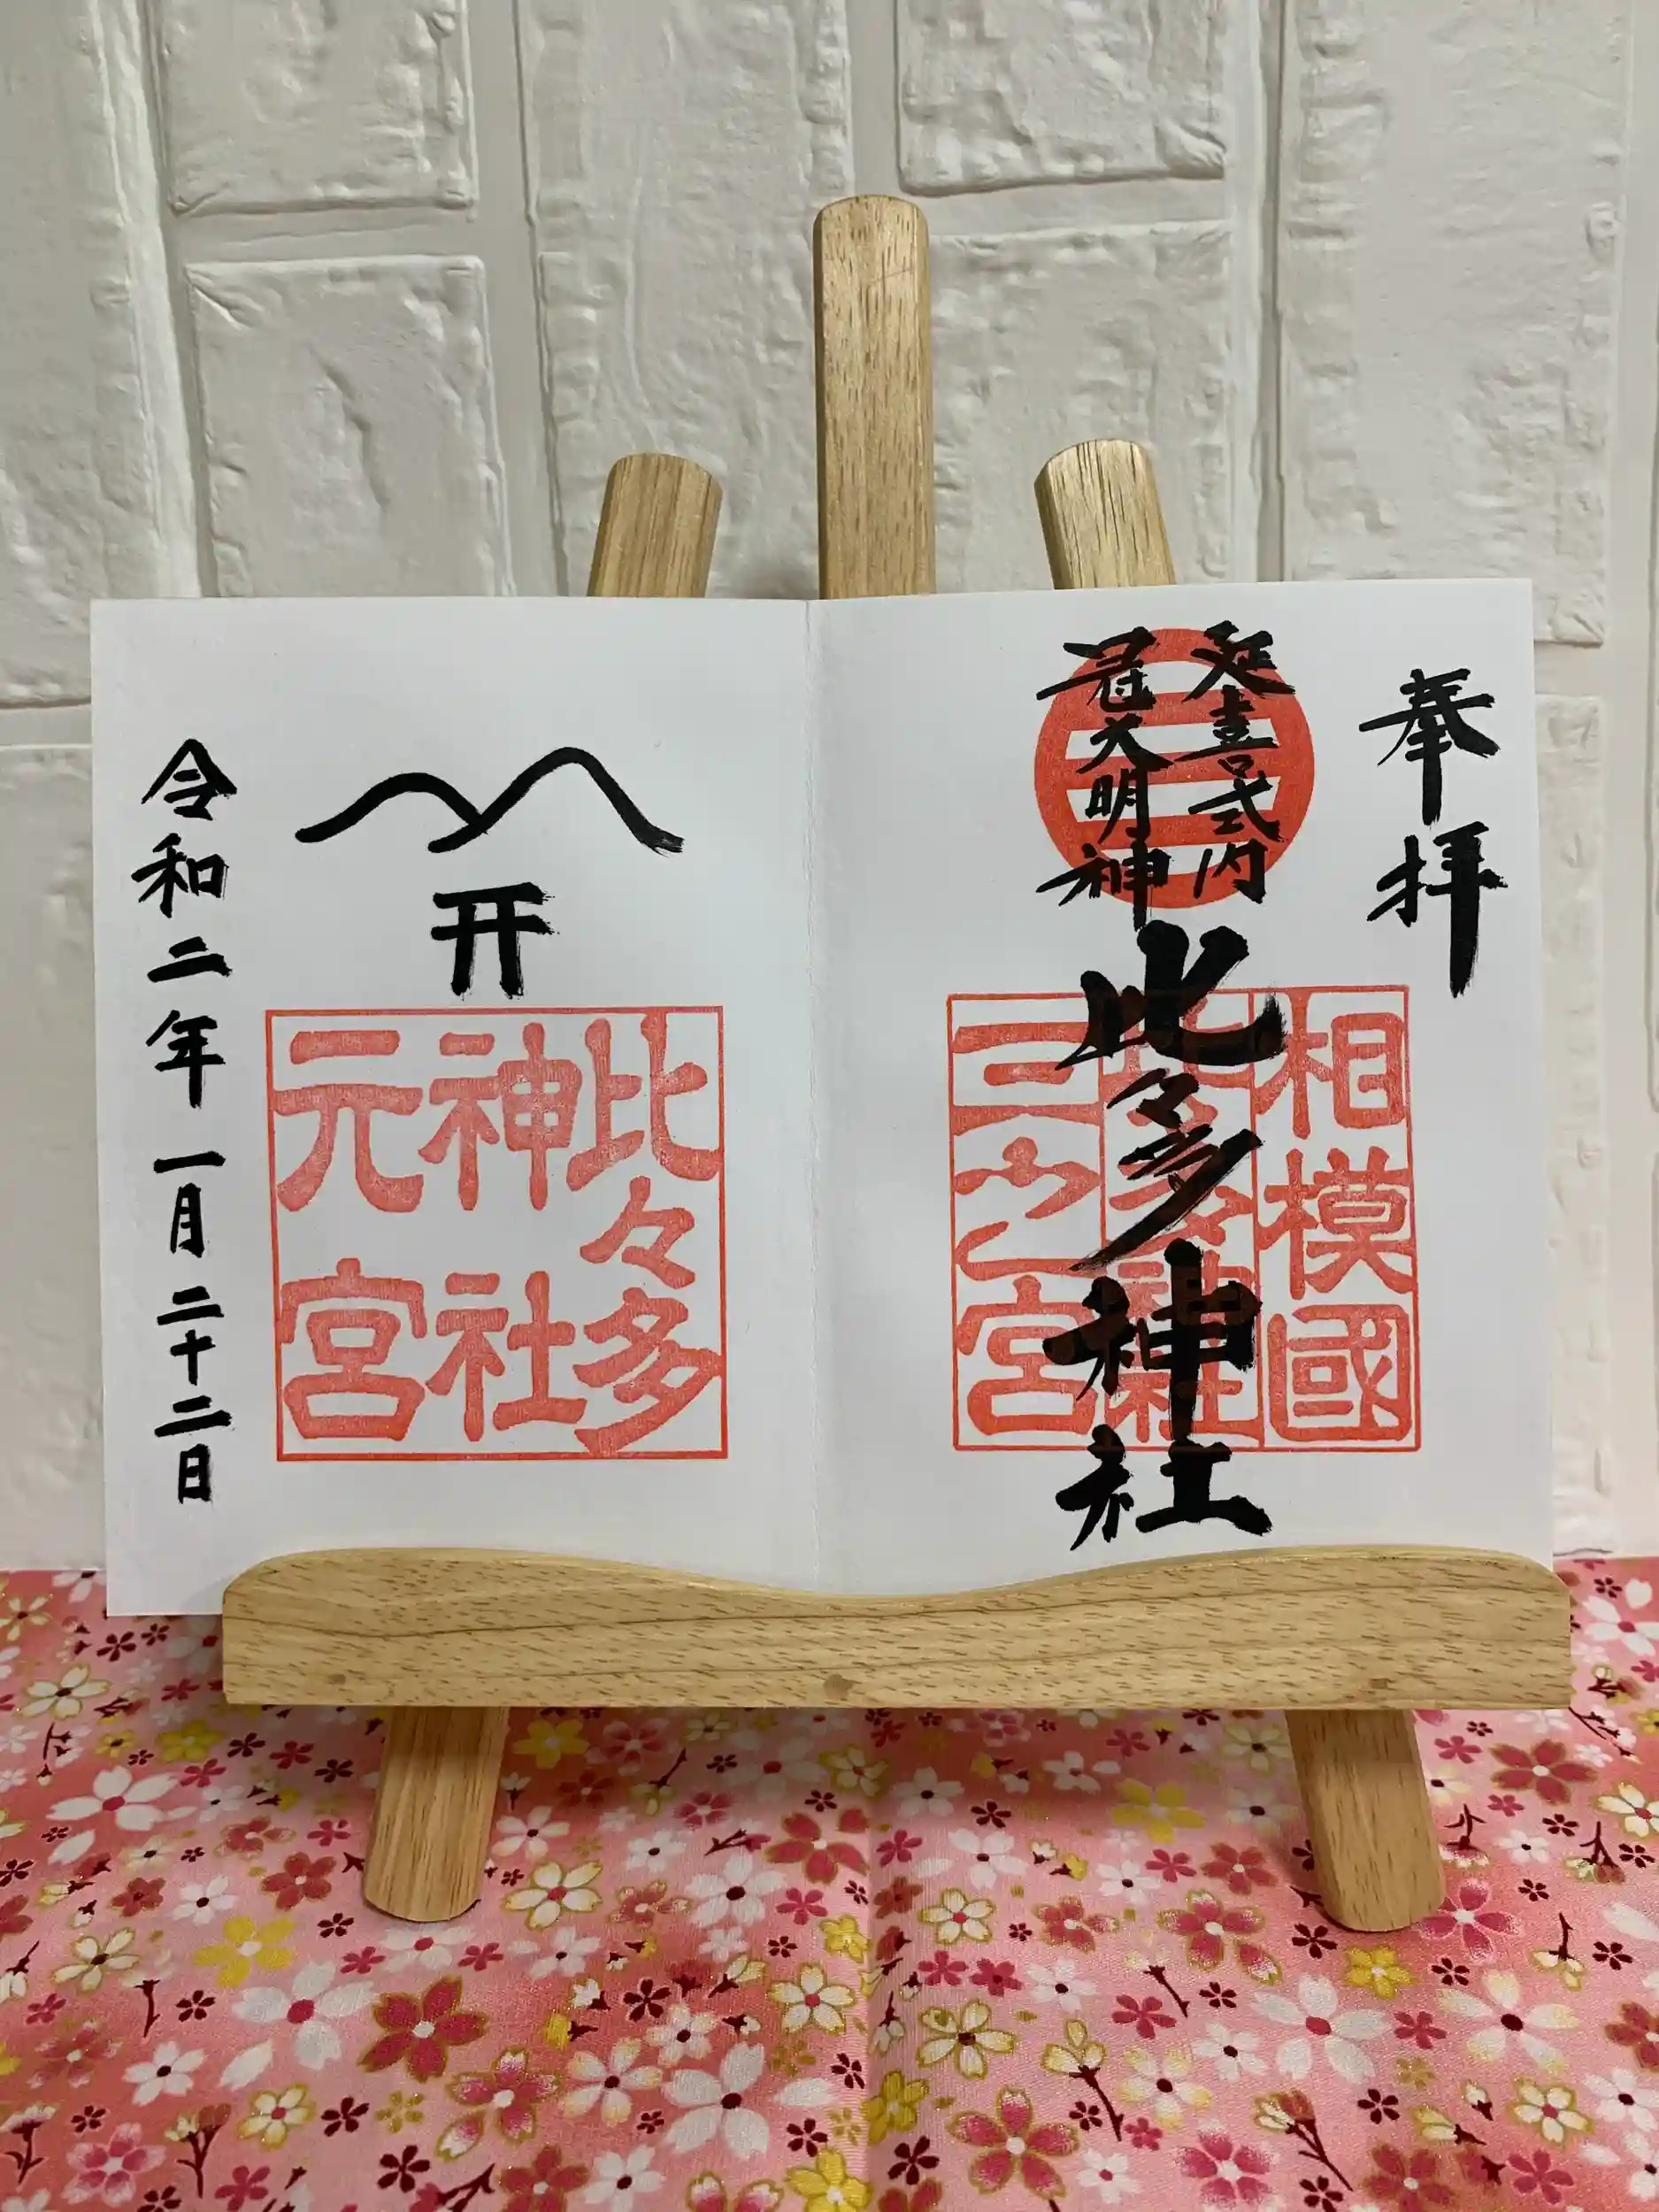 奉拝
延喜式内
冠大明神
比々多神社
相模國
三之宮
比々多
神社
元宮
令和二年一月二十二日